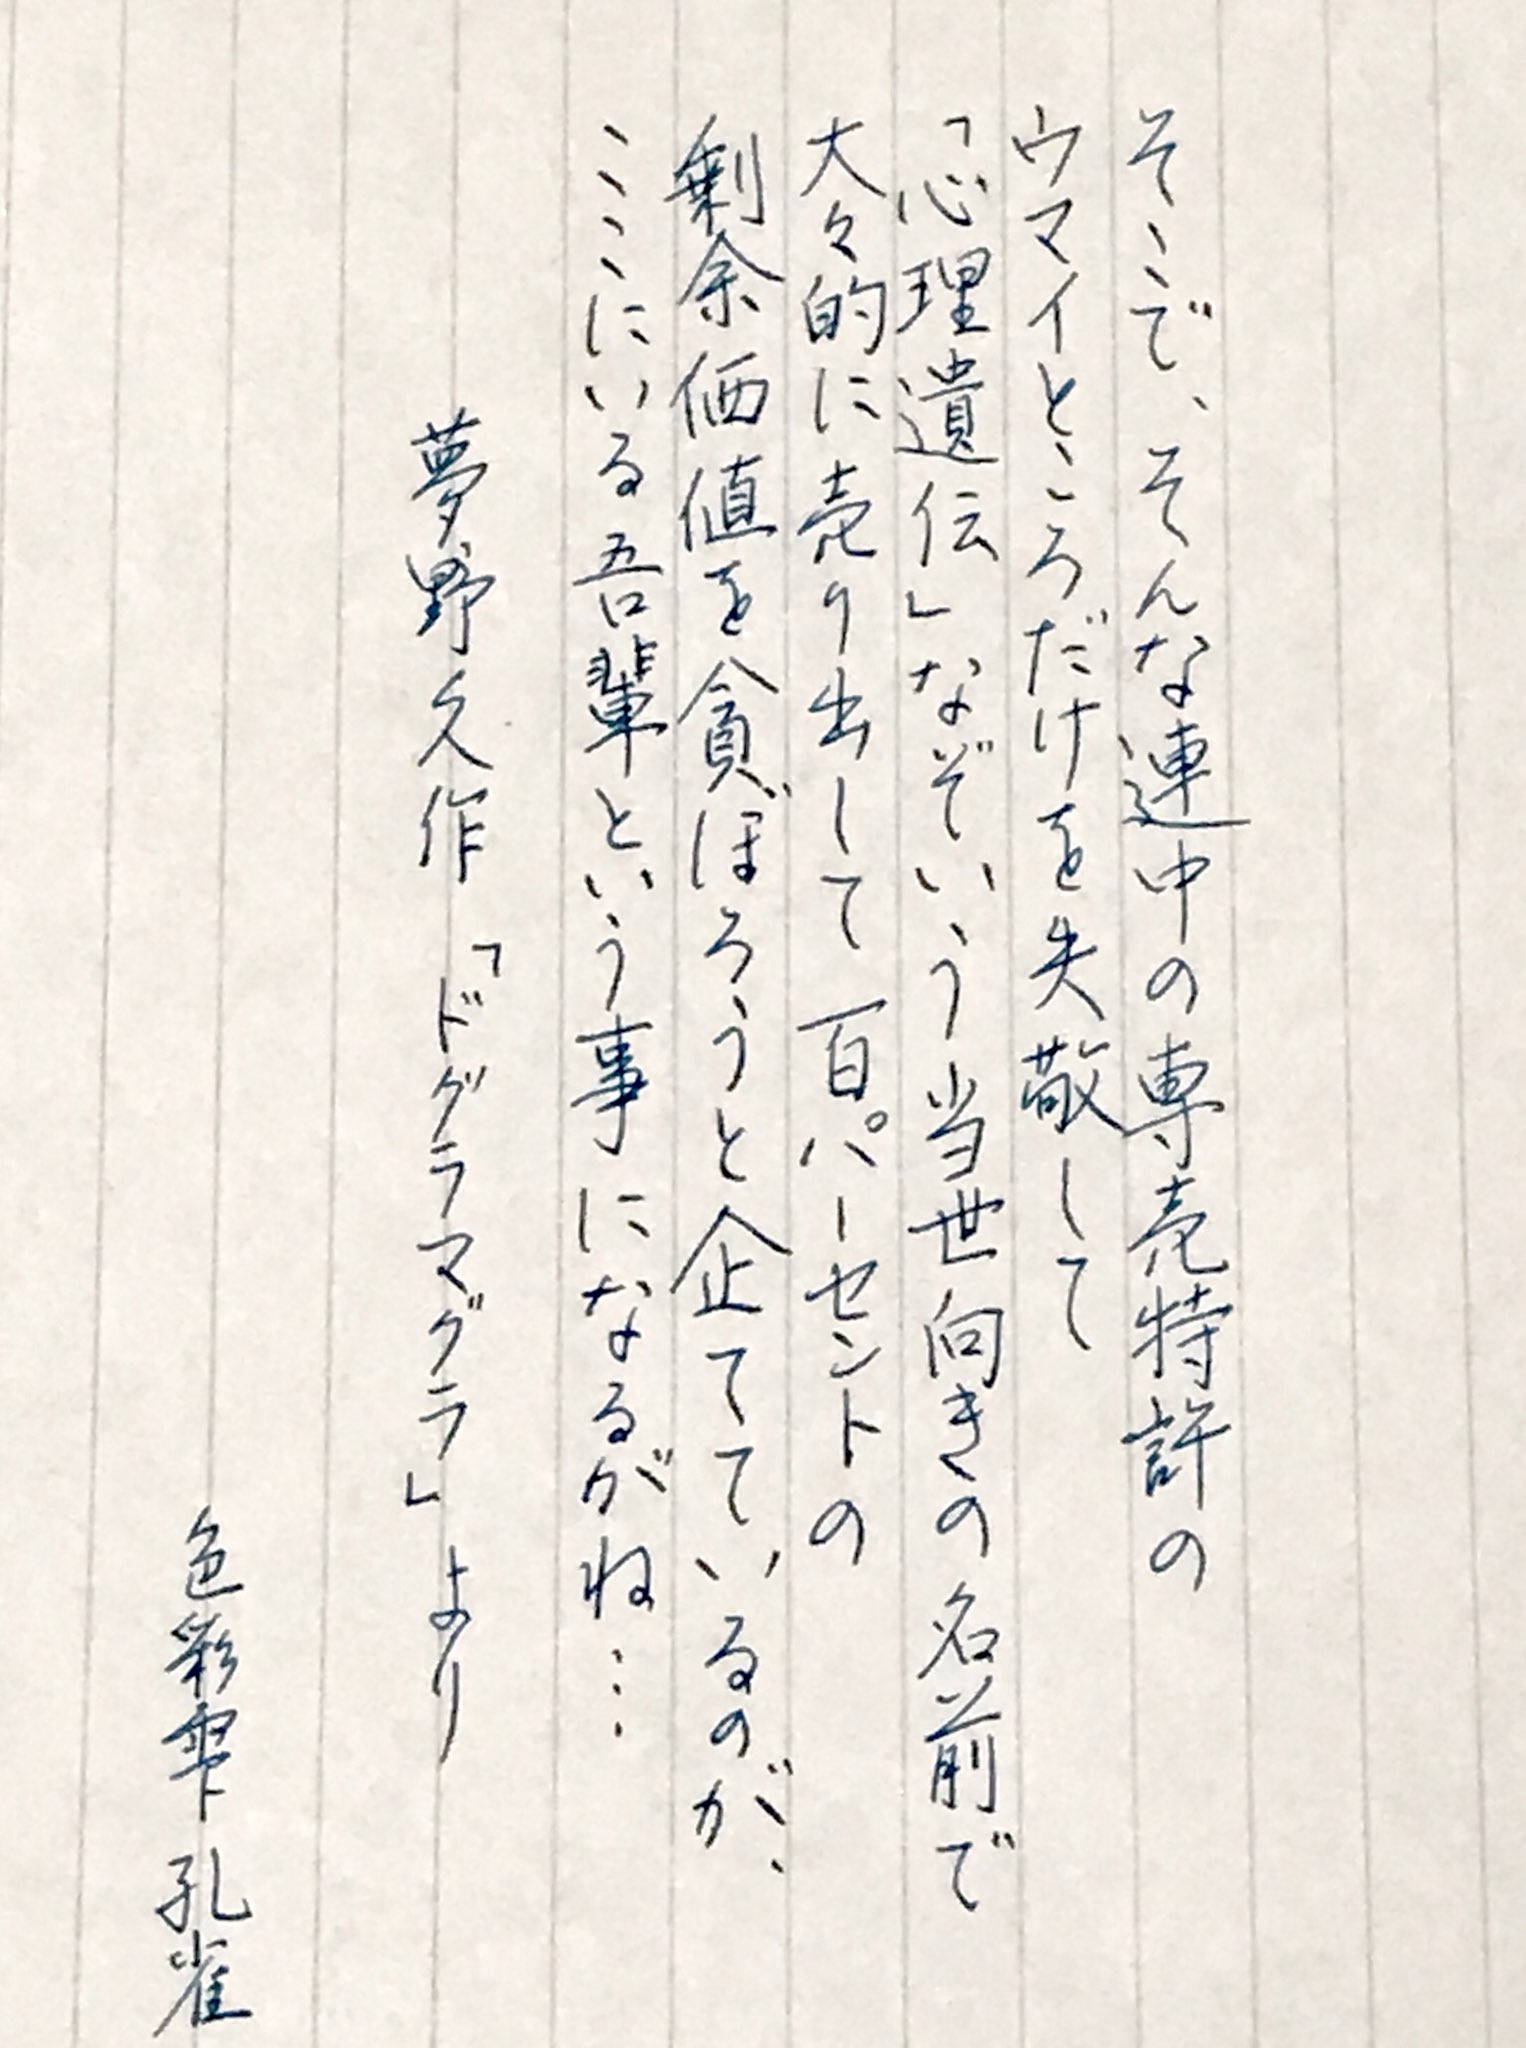 そこで、そんな連中の専売特許の
ウマイところだけを失敬して
「心理遺伝」なぞいう当世向きの名前で
大々的に売り出して百パーセントの
剰余価値を貪ぼろうと企てているのが、
ここにいる吾輩という事になるがね…
夢野久作「ドグラマグラ」より
色彩雫 孔雀